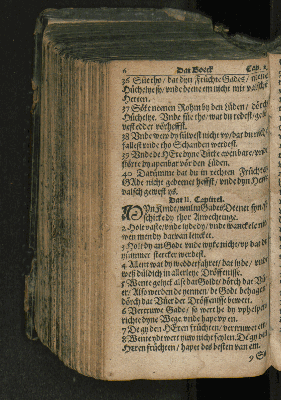 6 Dat Boeck Cap. 1.
36 Süe tho / dat dyn Früchte Gades / nicht
Hüchelye sy / vnde deene em nicht mit valschem
Herten.
37 Söke nenen Rohm by den Lüden / dörch
Hüchelye. Vnde süe tho / wat du redest / 
edder vörheffst.
38 Vnde werp dy sülvest nicht vp / dat du nicht
fallest vnde tho Schanden werdest.
39 Vnde de HEre dyne vnde
störte dy apenbar vör den Lüden.
40 Darümme dat du in rechter Früchte
Gade nicht gedeenet heffst / vnde dyn Herte
valsch gewest ys.
Dat II. Capittel.
MYn Kindt / wultu Gades Deener syn / so
schicke dy thor Anvechtinge.
2 Holt vaste / vnde lyde dy / vnde wanckele nicht
wen men dy darvan lencket.
3 Holt dy an Gade vnde wyke nicht / vp dat du
ümmer stercker werdest.
4 Allent wat dy weddervaret / dat lyde / vnde
wes düldich in allerleye Dröffenisse.
5 Wente gelyck alse dat Goldt dörch dat Vür
Also werden de yennen / de Gade behagen
dörch dat Vüer der Dröffenisse bewert.
6 Vertruwe Gade / so wert he dy vthelpen
richte dyne Wege vnde hape vp en.
7 De gy den HEren früchten / vertruwet em
Wente ydt wert yuw nicht feylen. De gy den
HEren früchten / hapet dat besten van em.
9